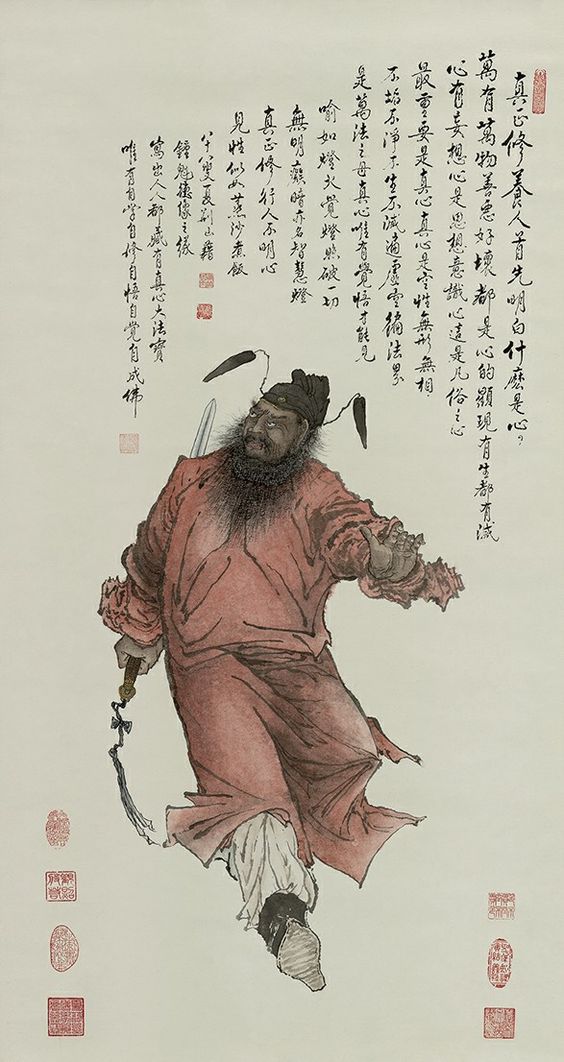 真正修養人首先明白什麽是心？
萬有萬物善惡好壞都是心的顯現有生都有滅
心有妄想心是思想意識心這是凡俗之心
最重要是真心真心是空性無形無相
不垢不淨不生不滅遍虛空徧法界
是萬法之母真心唯有覺悟才能見
喻如燈火覺燈照破一切
無明癡暗亦名智慧燈
真正修行人不明心
見性似如蒸沙煮飯
八十八叟夏荆山藉
鍾馗德像之緣
寫出人人都藏有真心大法寶
唯有自學自修自悟自覺自成佛